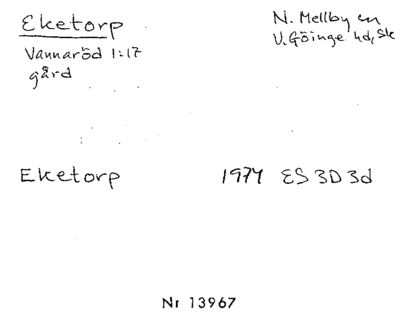 Eketorp
Vannaröd 1:17
gård
N. Mellby sn
V. Göinge hd, Sk
Eketorp 1974 ES 3D3d
Nr 13967